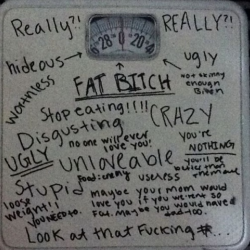 Really?! REALLY?!
28 0 20 4
hideous ugly
worthless not skinny enough
FAT BITCH
Stop eating!!!!
CRAZY
Disgusting
no one will ever love you!
you're NOTHING
UGLY
unloveable
you'll be
Stupid
food=enemy useless
loose weight!!
you NEED to.
maybe your mom would love you if you weren't so
Fat. Maybe you would have a
Look at that Fucking #...